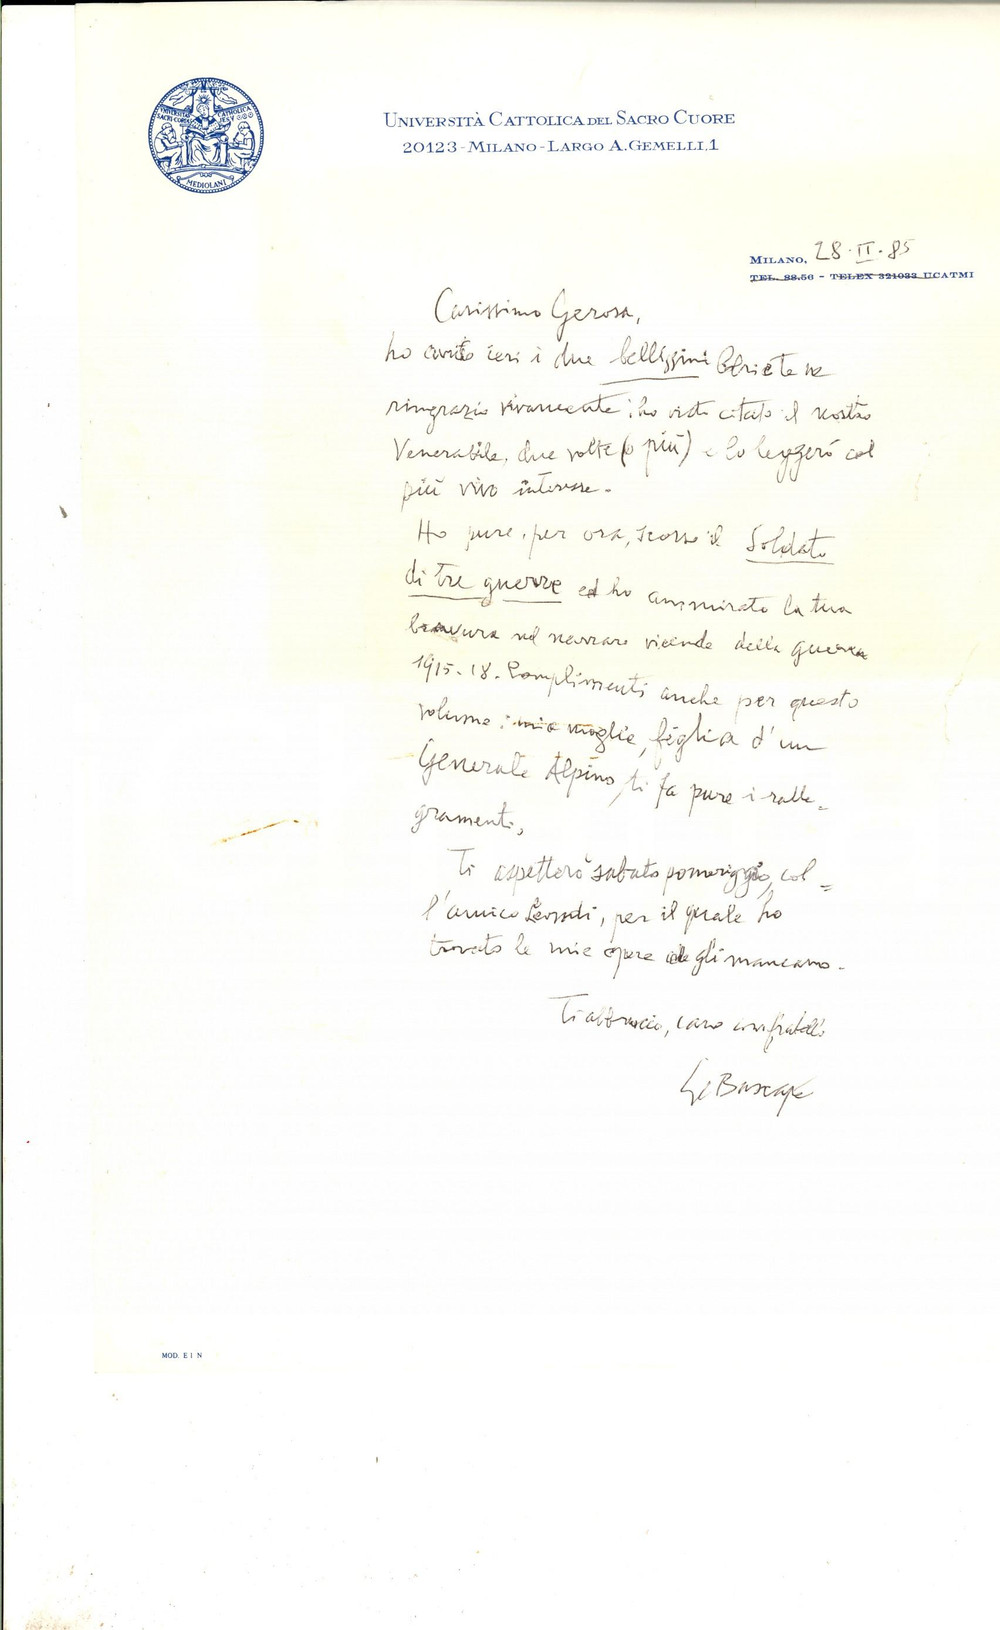 UNIVERSITAS CATHOLICA
SACRI CORDIS JESV
MEDIOLANI
UNIVERSITÀ CATTOLICA DEL SACRO CUORE
20123 - MILANO - LARGO A. GEMELLI, 1
MILANO, 28·II·85
TEL. 88.56 - TELEX 321033 UCATMI
Carissimo Gerosa,
ho avuto ieri i due bellissimi
ringrazio vivamente: ho visto citato il nostro
Venerabile, due volte (o più) e lo leggerò col
più vivo interesse.
Ho pure, per ora, scorso il Soldato
di tre guerre ed ho ammirato la tua
bravura nel narrare vicende della guerra
1915-18. Complimenti anche per questo
volume: mia moglie, figlia d'un
Generale Alpino, ti fa pure i ralle=
gramenti.
Ti aspetterò sabato pomeriggio, col=
l'amico, per il quale ho
trovato le mie opere che gli mancano.
Ti abbraccio, caro confratello
Buscapè
MOD. E 1 N